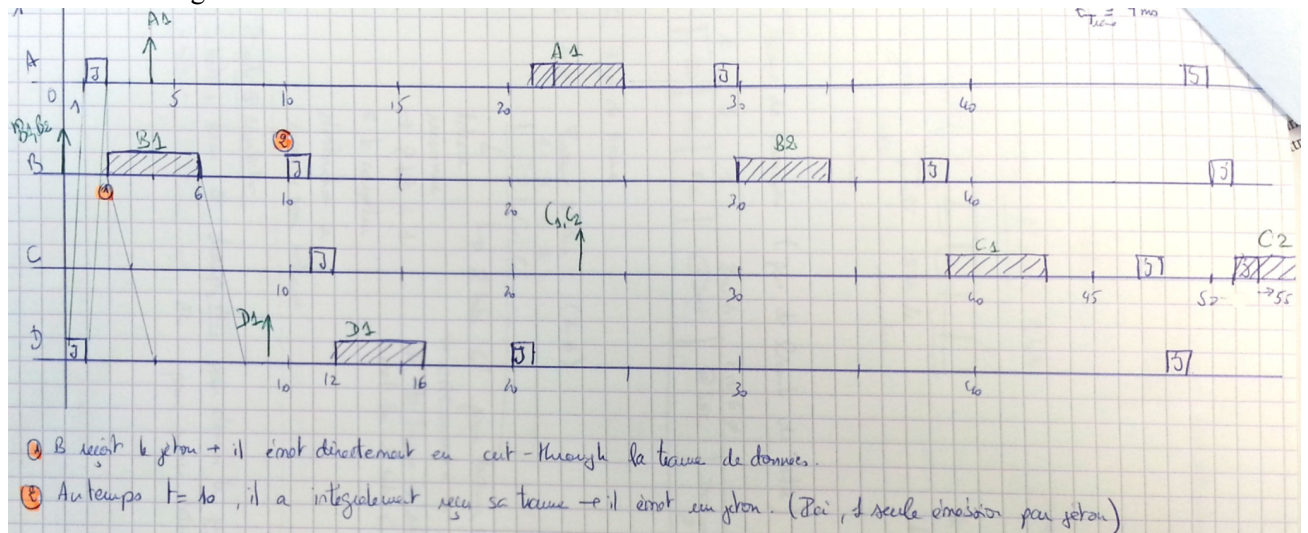 A1
A
J
A1
J
J
0 1 5 10 15 20 30 40
B1, B2
B
B1
2
J
B2
J
J
1 6 10 20 30 40
C
J
C1, C2
C1
J
J
C2
10 20 30 40 45 50 →55
D
J
D1
D1
J
J
10 12 16 20 30 40
1 B reçoit le jeton → il émet directement en cut-through la trame de données.
2 Au temps t = 10, il a intégralement reçu sa trame → il émet un jeton. (Ici, 1 seule émission par jeton)